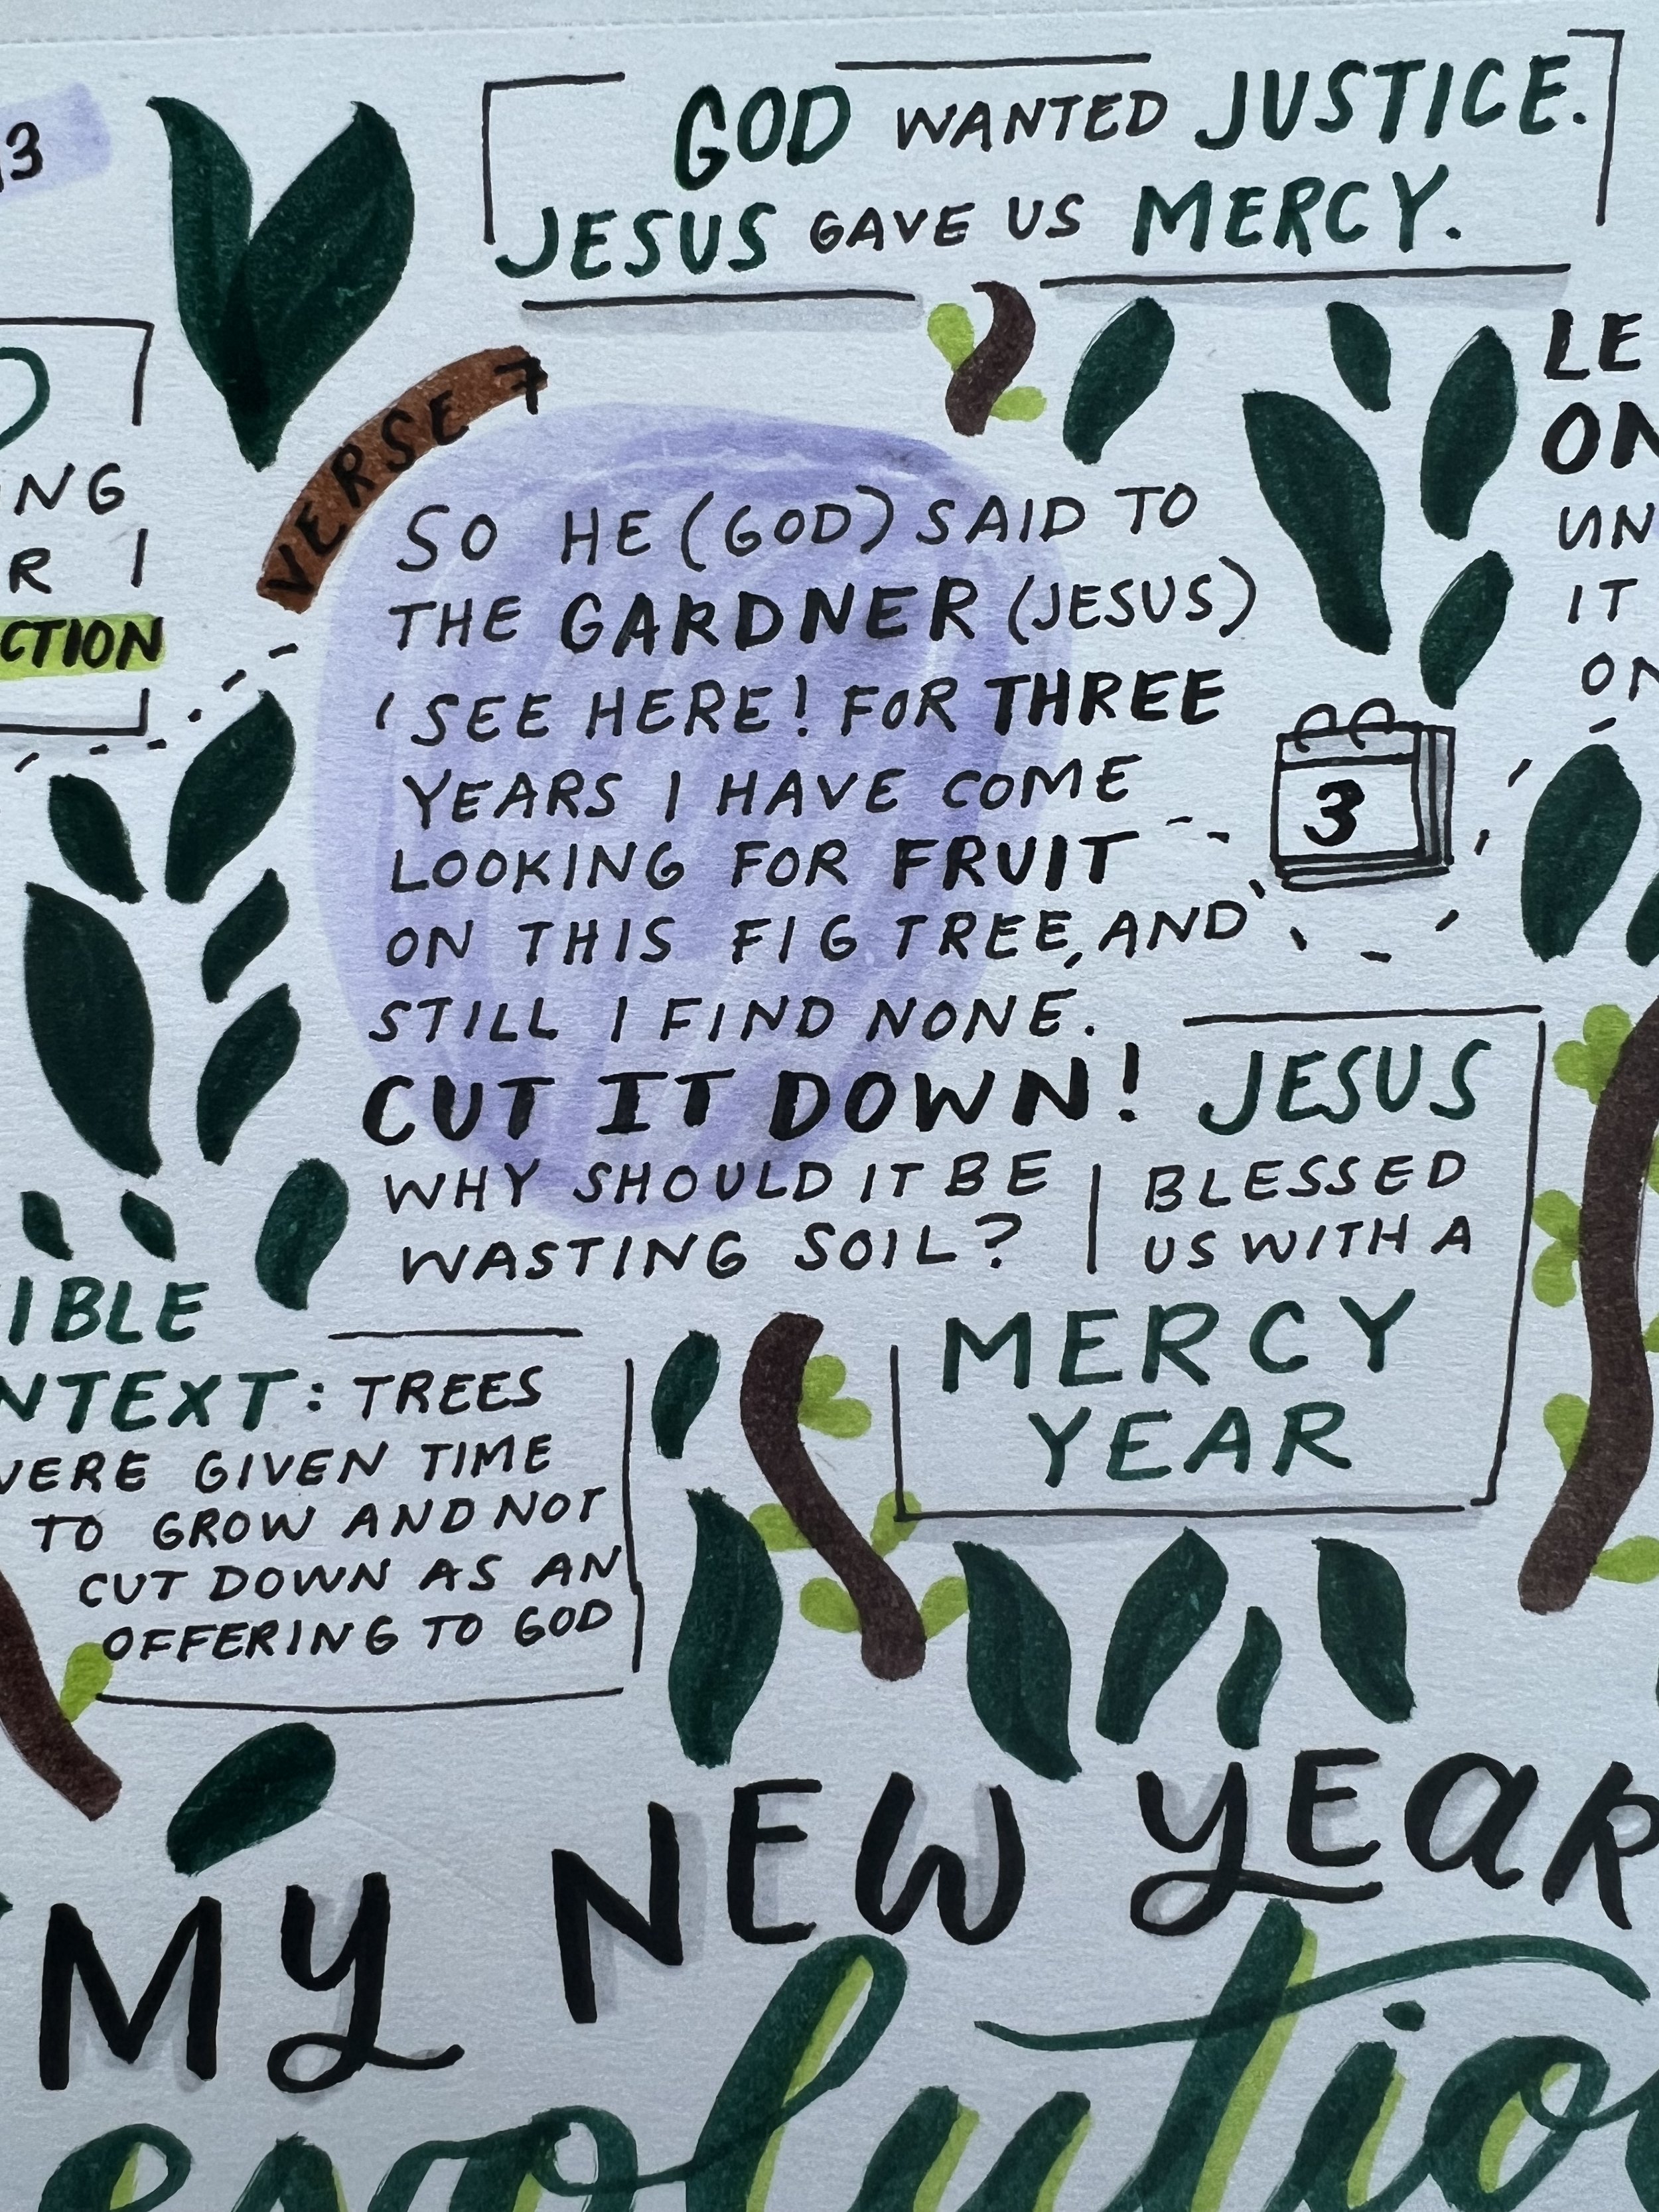 13
GOD WANTED JUSTICE.
JESUS GAVE US MERCY.
VERSE 7
SO HE (GOD) SAID TO
THE GARDNER (JESUS)
'SEE HERE! FOR THREE
YEARS I HAVE COME
LOOKING FOR FRUIT
ON THIS FIG TREE, AND
STILL I FIND NONE.
CUT IT DOWN!
WHY SHOULD IT BE
WASTING SOIL?
3
JESUS
BLESSED
US WITH A
MERCY
YEAR
NG
R I
CTION
LE
ON
UN
IT
ON
IBLE
NTEXT: TREES
WERE GIVEN TIME
TO GROW AND NOT
CUT DOWN AS AN
OFFERING TO GOD
MY NEW YEAR
evolutio